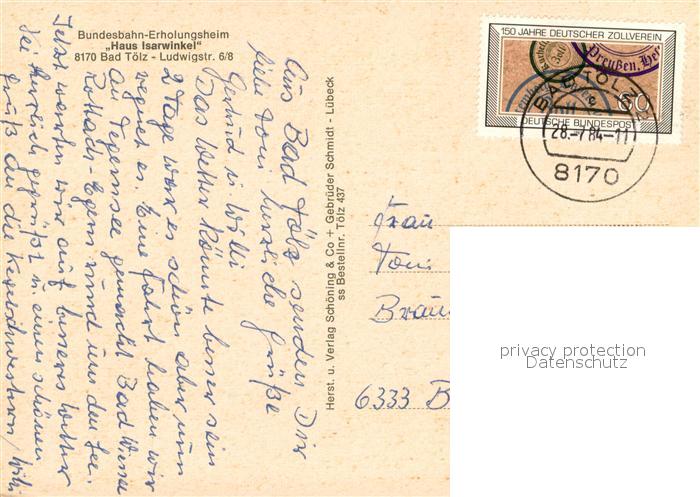 Bundesbahn-Erholungsheim
„Haus Isarwinkel"
8170 Bad Tölz - Ludwigstr. 6/8
Aus Bad Tölz senden Dir
liebe Toni herzliche Grüße
Gertrud u. Willi
Das Wetter könnte besser sein
2 Tage war es schön aber nun
regnet es. Eine Fahrt haben wir
am Tegernsee gemacht Bad Wiessee
Rottach-Egern rund um den See.
Jetzt warten wir auf besseres Wetter
Sei herzlich gegrüßt u. einen schönen
Gruß an die Kegelschwestern
Herst. u. Verlag Schöning & Co + Gebrüder Schmidt - Lübeck
ss Bestellnr. Tölz 437
150 JAHRE DEUTSCHER ZOLLVEREIN
Preußen.
60
DEUTSCHE BUNDESPOST
BAD TÖLZ
28.-7.84-11
8170
Frau
Toni
Brau
6333 B
privacy protection
Datenschutz